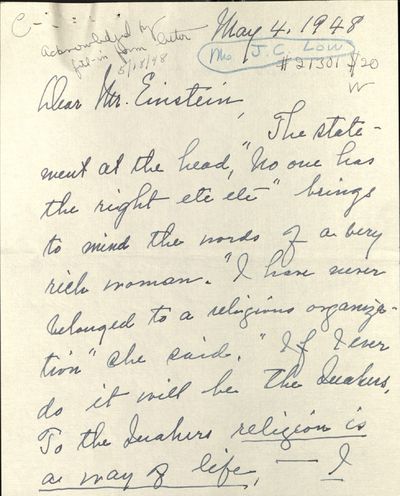 May 4, 1948
acknowledged by
fill-in form
5/18/48
Mrs. J. C. Low
#21301 $20
Dear Mr. Einstein,
The state-
ment at the head, "No one has
the right etc etc" brings
to mind the words of a very
rich woman. "I have never
belonged to a religious organiza-
tion" she said. "If I ever
do it will be the Quakers,
To the Quakers religion is
a way of life, — I